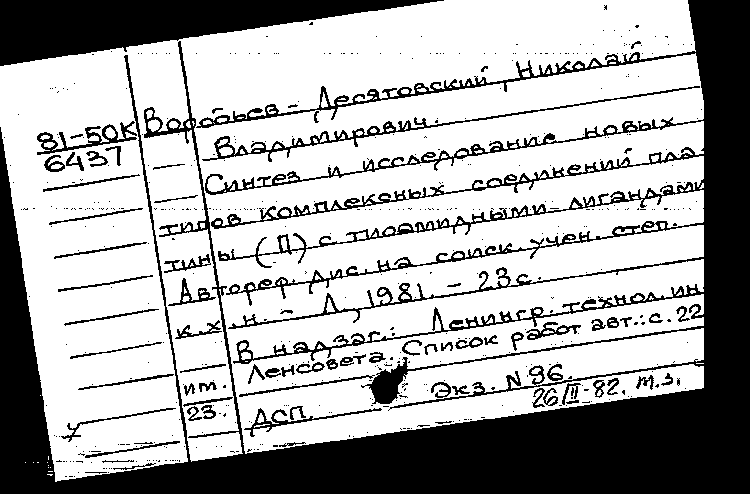 81-50К Воробьев-Десятовский, Николай
6437 Владимирович.
Синтез и исследование новых
типов комплексных соединений пла-
тины (II) с тиоамидными лигандами
Автореф. дис. на соиск. учен. степ.
к.х.н. - Л., 1981. - 23с.
В надзаг.: Ленингр. технол. ин-
им. Ленсовета. Список работ авт.: с. 22
23.
ДСП. Экз. N 96.
26/II-82. т.з.